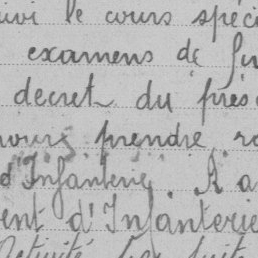 le cours spéci
examens de
decret du prés
pour prendre
d'Infanterie. A a
ent d'Infanterie